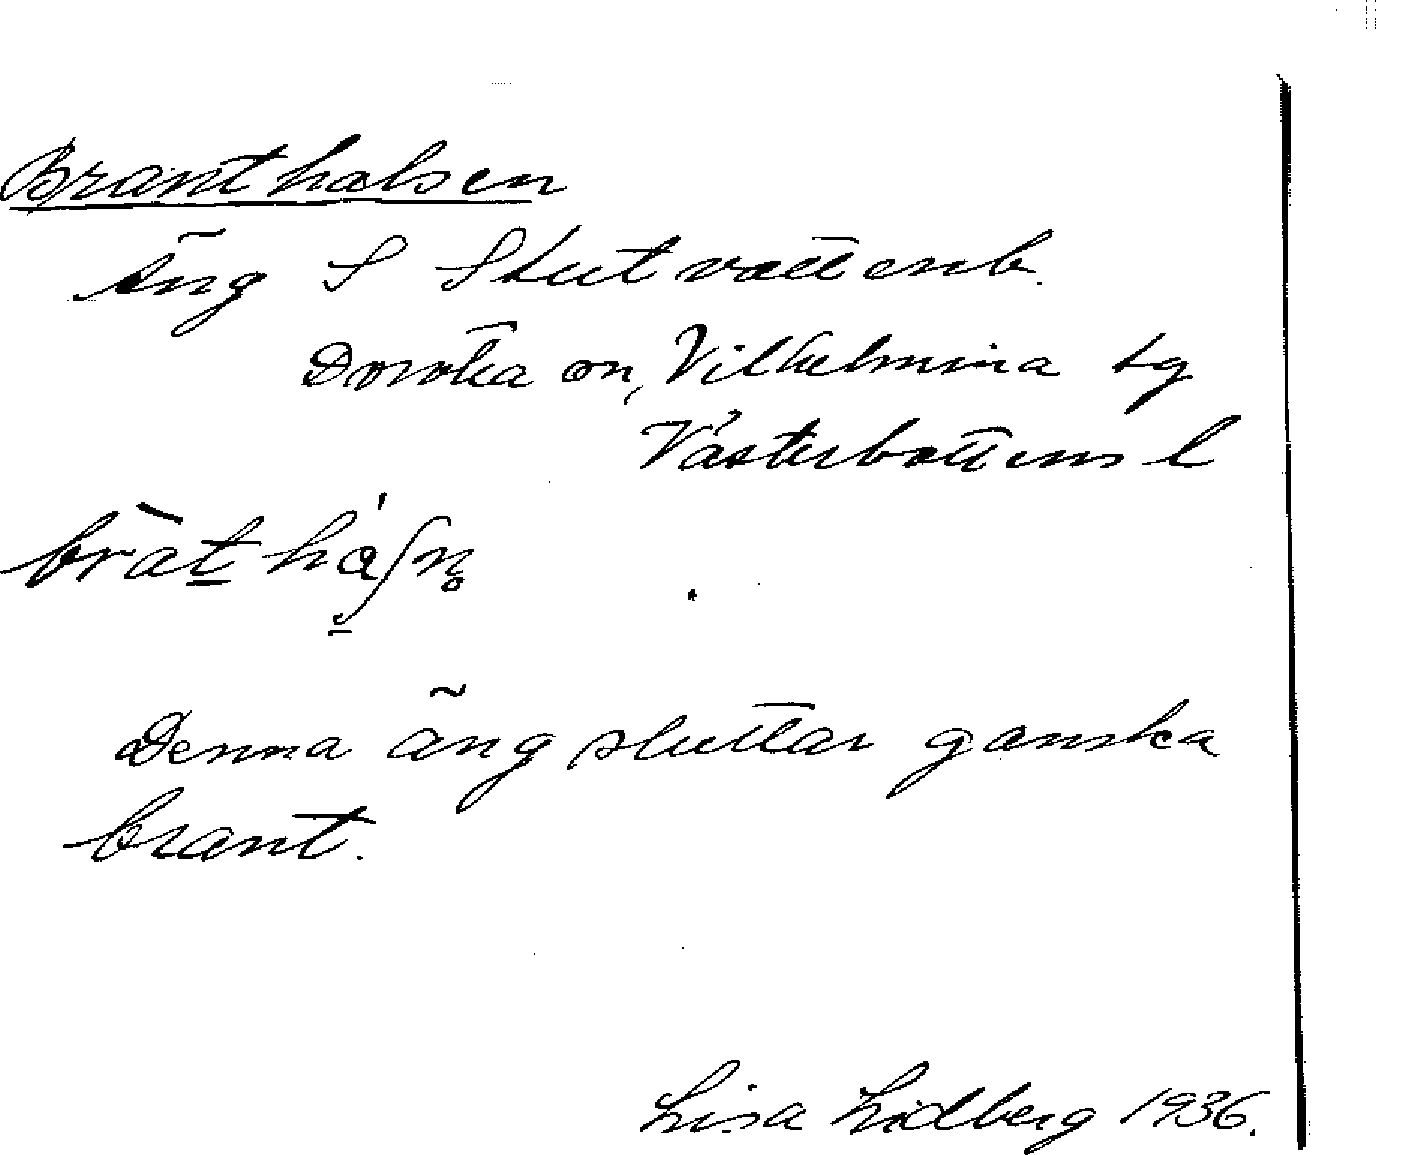 Branthalsen
Äng S Stutvattenb.
Dorotea sn, Vilhelmina tg
Västerbottens l
Denna äng sluttar ganska
brant.
Lisa Lidberg 1936.